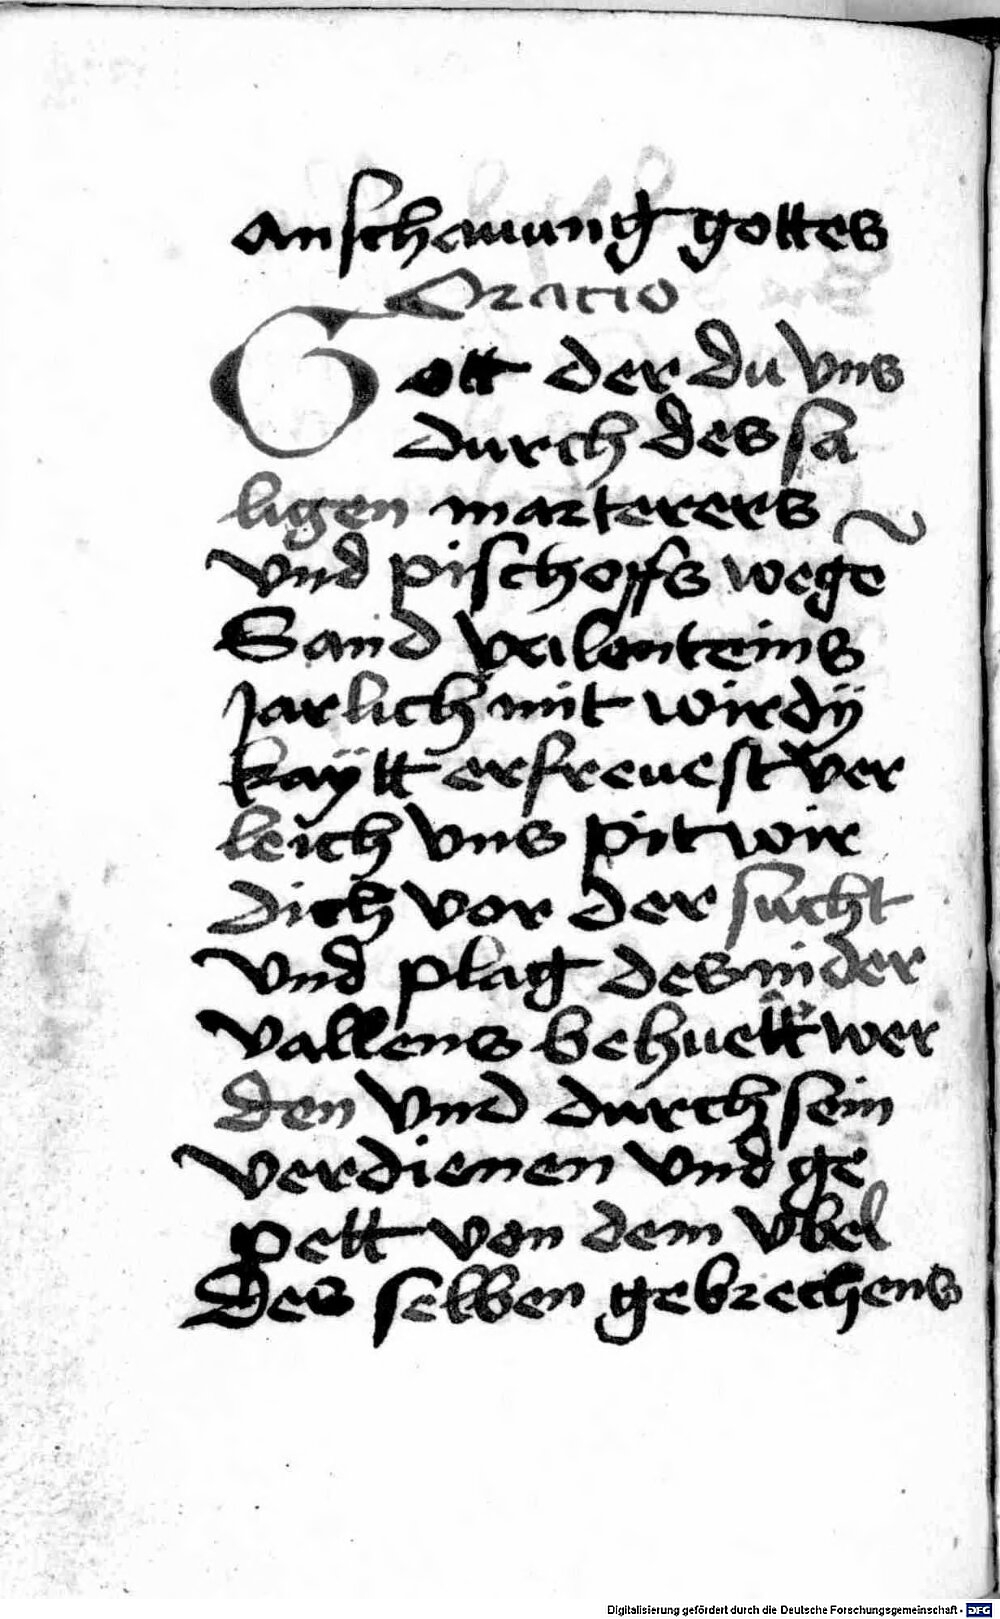 anschauung gottes
Oracio
Gott der du vns
durch des sa
ligen marterers
vnd pischoffs wegē
Sand valenteins
jarlich mit wirdÿ
kaÿtt erfreuest ver
leich vns pit wir
dich vor der sucht
vnd plag des nider
vallens behuett wer
den vnd durch sein
verdienen vnd ge
pett von dem vbel
des selben gebrechens
Digitalisierung gefördert durch die Deutsche Forschungsgemeinschaft - DFG